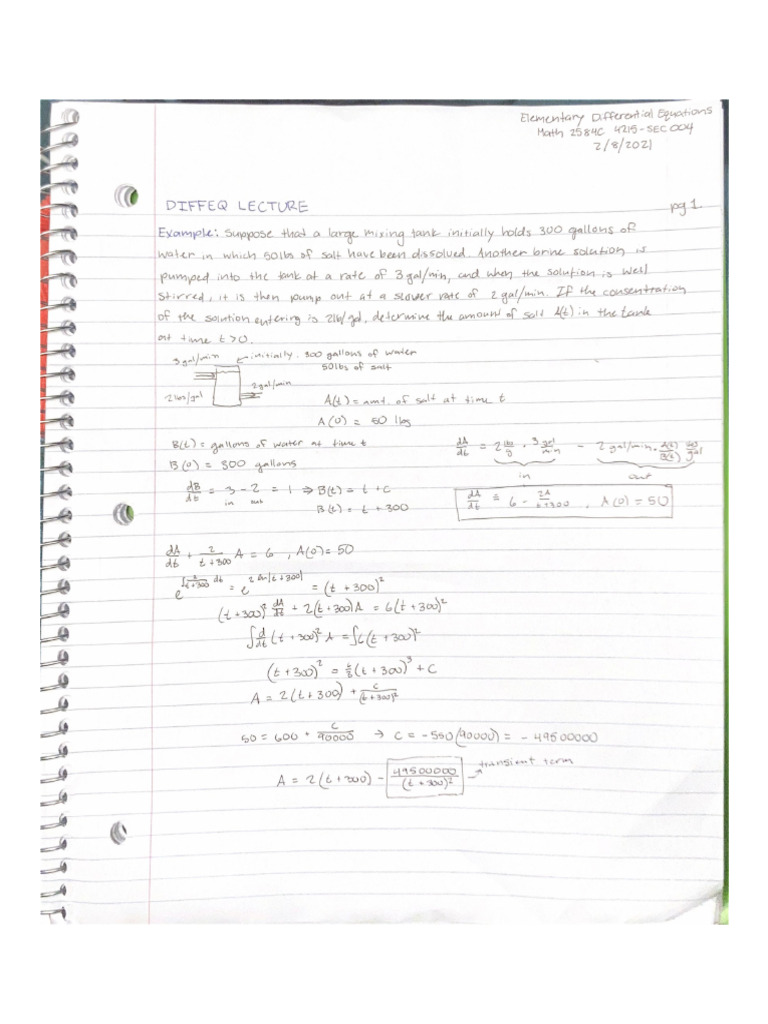 Elementary Differential Equations
Math 2584C 4215-SEC004
2/8/2021
DIFFEQ LECTURE
pg 1.
Example: Suppose that a large mixing tank initially holds 300 gallons of
water in which 50lbs of salt have been dissolved. Another brine solution is
pumped into the tank at a rate of 3 gal/min, and when the solution is well
stirred, it is then pump out at a slower rate of 2 gal/min. If the consentration
of the solution entering is 2lb/gal, determine the amount of salt A(t) in the tank
at time t>0.
3 gal/min
initially. 300 gallons of water
50lbs of salt
2gal/min
2 lbs/gal
A(t) = amt. of salt at time t
A(0) = 50 lbs
B(t) = gallons of water at time t
B(0) = 300 gallons
dA/dt = 2 lb/g · 3 gal/min - 2 gal/min · A(t)/B(t) /gal
in out
dB/dt = 3 - 2 = 1 ⇒ B(t) = t + C
in out
B(t) = t + 300
dA/dt = 6 - 2A/t+300, A(0) = 50
dA/dt + 2/t+300 A = 6, A(0) = 50
e^∫2/t+300 dt = e^2 ln|t+300| = (t+300)²
(t+300)² dA/dt + 2(t+300)A = 6(t+300)²
∫d/dt (t+300)² A = ∫6(t+300)²
(t+300)² = 6/3(t+300)³ + C
A = 2(t+300) + C/(t+300)²
50 = 600 + C/90000 → C = -550(90000) = -49500000
A = 2(t+300) - 49500000/(t+300)² → transient term